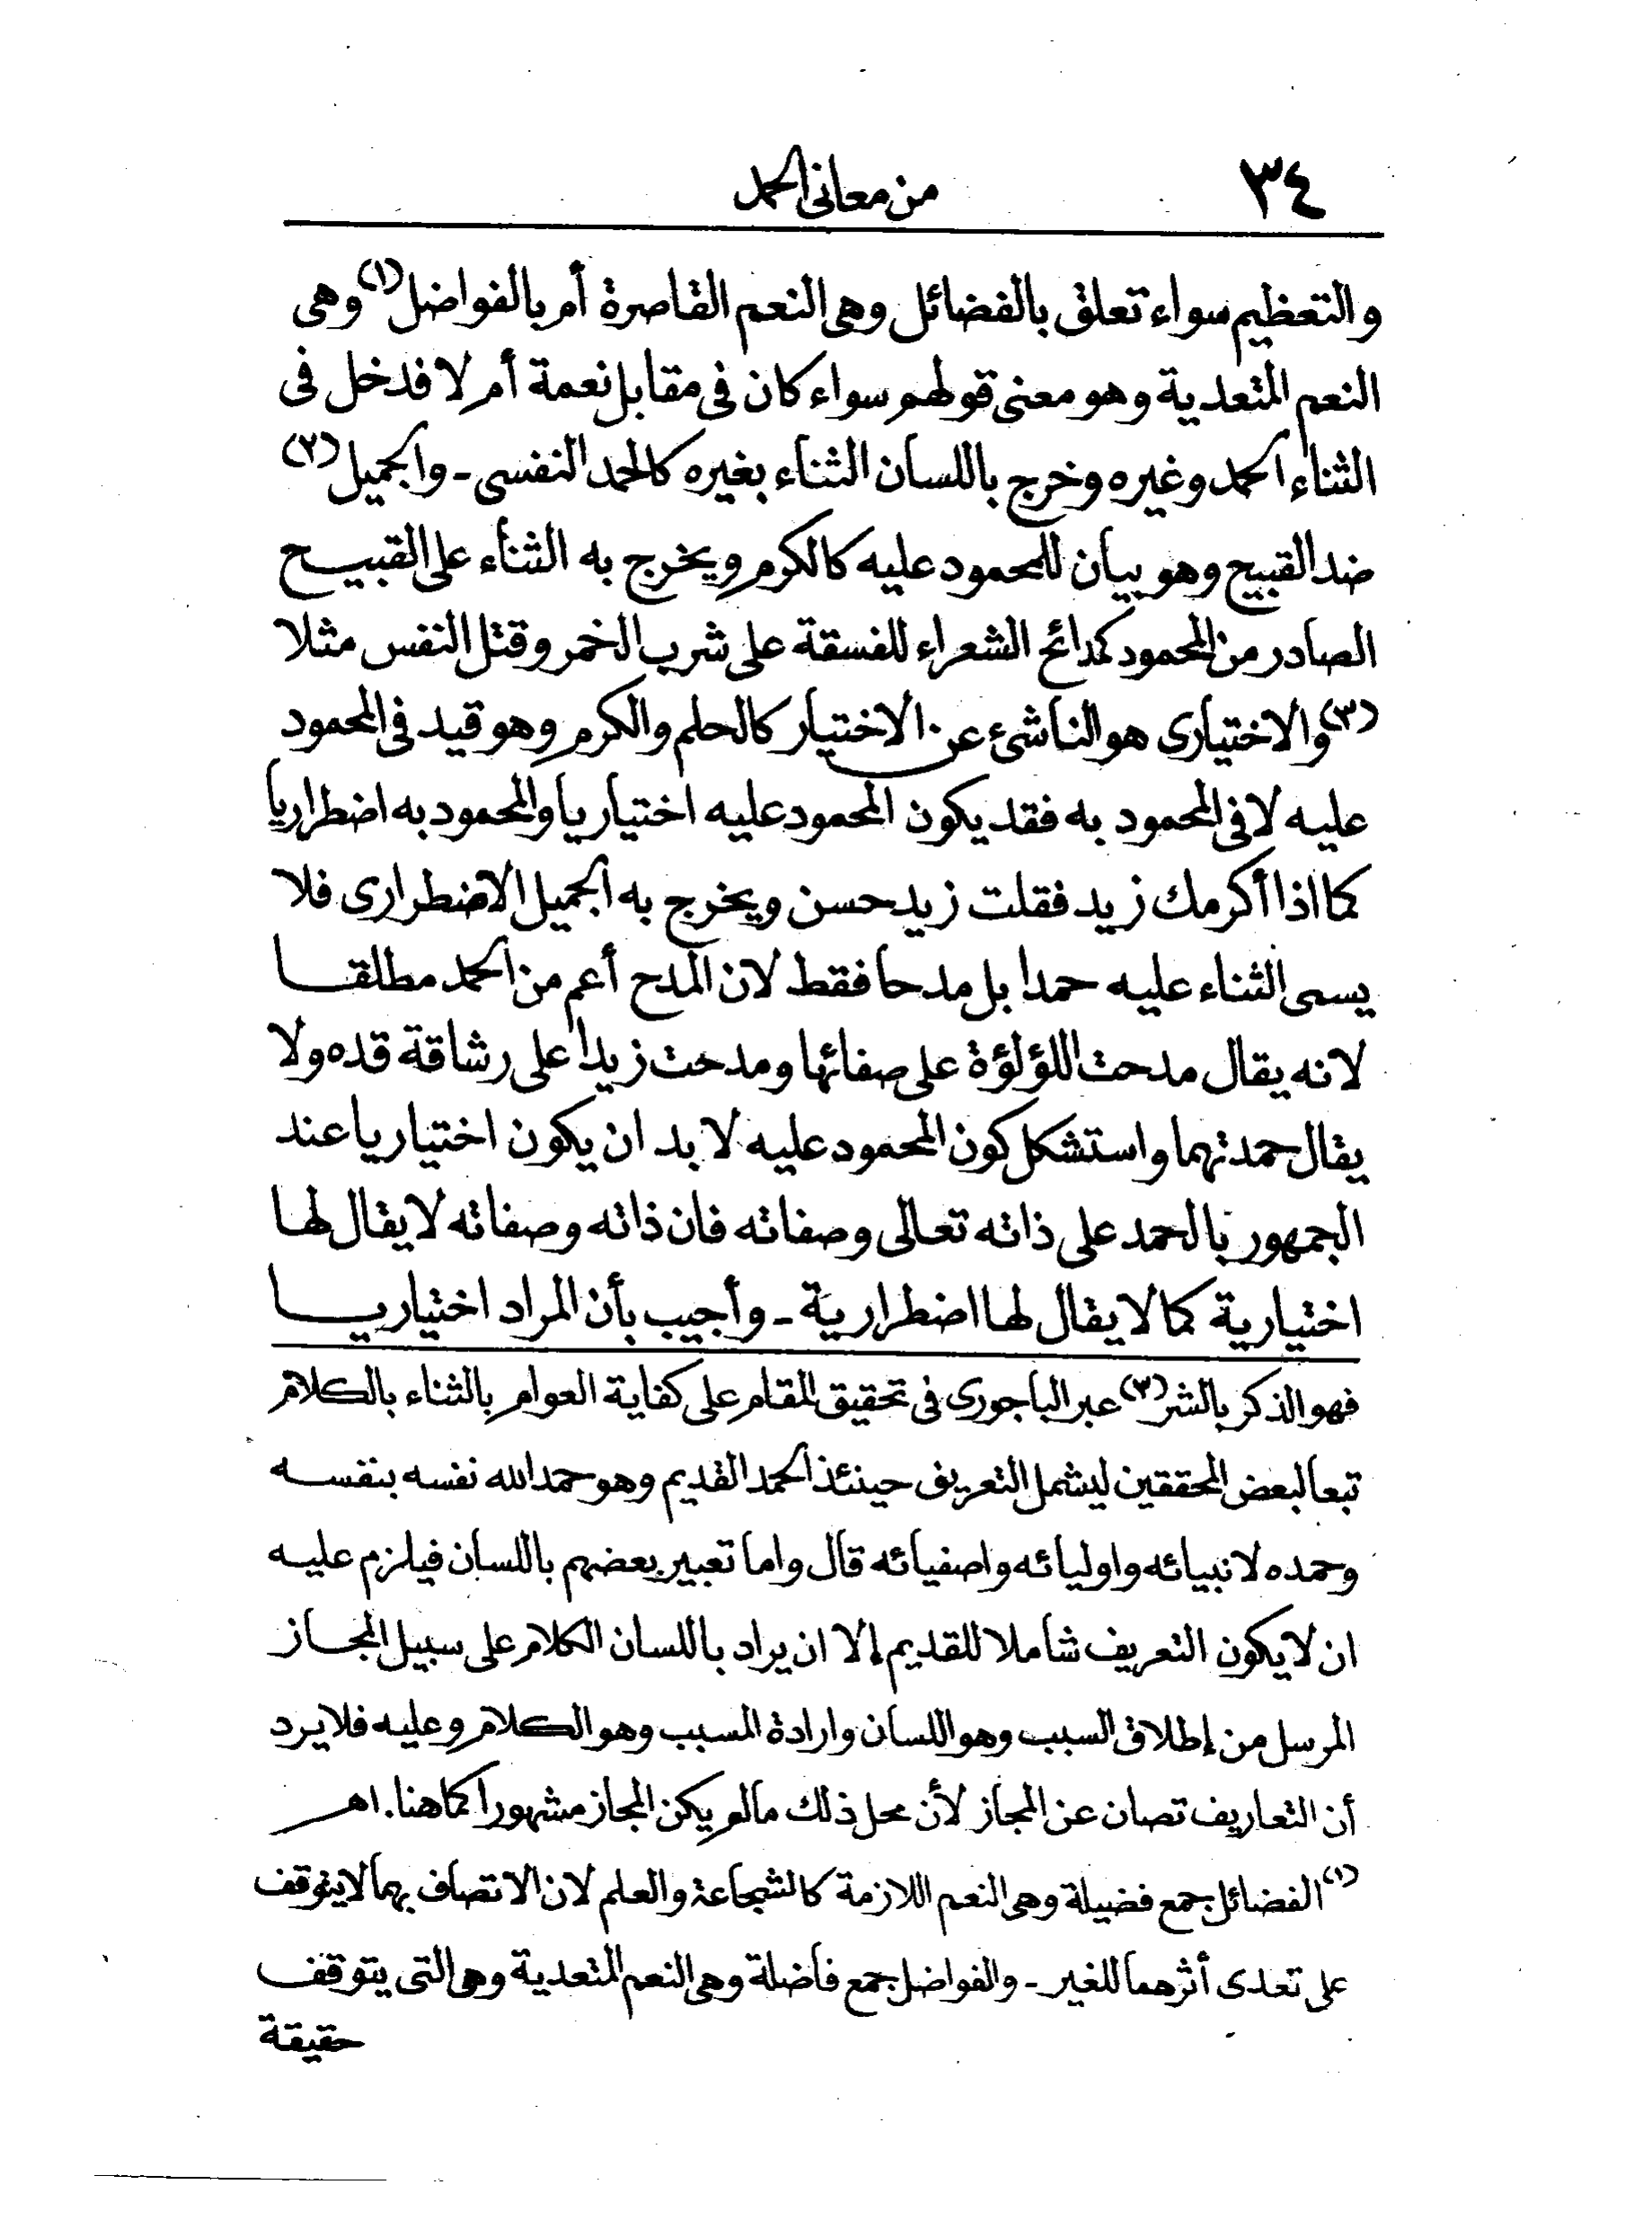 ٣٤
من معانى الحمد
والتعظيم سواء تعلق بالفضائل وهى النعم القاصرة أم بالفواضل (١) وهى
النعم المتعدية وهو معنى قولهم سواء كان فى مقابل نعمة أم لا فدخل فى
الثناء الحمد وغيره وخرج باللسان الثناء بغيره كالحمد النفسى - والجميل (٢)
ضد القبيح وهو بيان للمحمود عليه كالكرم ويخرج به الثناء على القبيح
الصادر من المحمود كمدائح الشعراء للفسقة على شرب الخمر وقتل النفس مثلا
(٣) والاختيارى هو الناشئ عن الاختيار كالحلم والكرم وهو قيد فى المحمود
عليه لا فى المحمود به فقد يكون المحمود عليه اختياريا والمحمود به اضطراريا
كما اذا أكرمك زيد فقلت زيد حسن ويخرج به الجميل الاضطرارى فلا
يسمى الثناء عليه حمدا بل مدحا فقط لان المدح أعم من الحمد مطلقا
لانه يقال مدحت اللؤلؤة على صفائها ومدحت زيدا على رشاقة قده ولا
يقال حمدتهما واستشكل كون المحمود عليه لا بد ان يكون اختياريا عند
الجمهور بالحمد على ذاته تعالى وصفاته فان ذاته وصفاته لا يقال لها
اختيارية كما لا يقال لها اضطرارية - وأجيب بأن المراد اختياريا
فهو الذكر بالشر (٣) عبر الباجورى فى تحقيق المقام على كفاية العوام بالثناء بالكلام
تبعا لبعض المحققين ليشمل التعريف حينئذ الحمد القديم وهو حمد الله نفسه بنفسه
وحمده لانبيائه واوليائه واصفيائه قال واما تعبير بعضهم باللسان فيلزم عليه
ان لا يكون التعريف شاملا للقديم إلا ان يراد باللسان الكلام على سبيل المجاز
المرسل من إطلاق السبب وهو اللسان وارادة المسبب وهو الكلام وعليه فلا يرد
أن التعاريف تصان عن المجاز لأن محل ذلك مالم يكن المجاز مشهورا كما هنا. اهـ
(١) الفضائل جمع فضيلة وهى النعم اللازمة كالشجاعة والعلم لان الاتصاف بهما لا يتوقف
على تعدى أثرهما للغير - والفواضل جمع فاضلة وهى النعم المتعدية وهى التى يتوقف
حقيقة